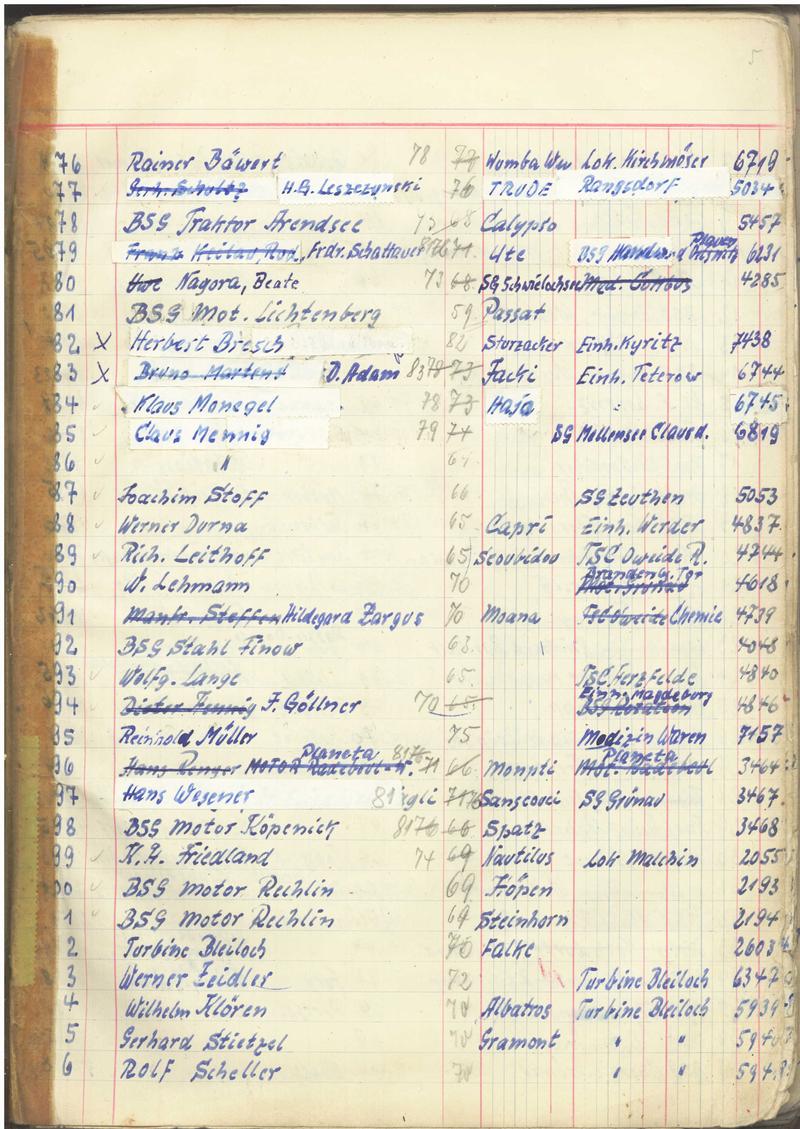 5
76 Rainer Bäwert 78 72 Wumba Wu Lok. Kirchmöser 6719
77 Gerh. Scholtz H.G. Leszczynski 76 TRUDE Rangsdorf 5034
78 BSG Traktor Arendsee 73 68 Calypso 5457
79 Frdr. Schattauer 71 Ute Plauen 6231
80 Uwe Nagora, Beate 73 68 SG Schwielochsee Med. Cottbus 4285
81 BSG Mot. Lichtenberg 59 Passat
82 X Herbert Bresch 82 Sturzacker Einh. Kyritz 7438
83 X Bruno Martens D. Adam 83 78 73 Jacki Einh. Teterow 6744
84 Klaus Monegel 78 73 Haja " 6745
85 Claus Mennig 79 74 SG Mellensee Clausd. 6819
86 " 64
87 Joachim Stoff 66 SG Zeuthen 5053
88 Werner Durna 65 Capri Einh. Werder 4837
89 Rich. Leithoff 65 Scoubidou TSC Oweide R. 4744
90 W. Lehmann 70 Brandenb. Tor 4618
91 Manfr. Steffen Hildegard Zargus 70 Moana TSC Oweide Chemie 4739
92 BSG Stahl Finow 63 4048
93 Wolfg. Lange 65 TSC Herzfelde 4840
94 Dieter Fennig F. Göllner 70 65 Einh. Magdeburg 4846
95 Reinhold Müller 75 Medizin Waren 7157
96 Hans Renger MOTOR Radebeul Planeta 81 76 71 66 Monpti Mot. Radebeul Planeta 3464
97 Hans Wesener 81 71 76 Sanssouci SG Grünau 3467
98 BSG Motor Köpenick 81 76 66 Spatz 3468
99 K.H. Friedland 74 69 Nautilus Lok Malchin 2055
00 BSG Motor Rechlin 69 Höpen 2193
1 BSG Motor Rechlin 69 Steinhorn 2194
2 Turbine Bleiloch 70 Falke 2603
3 Werner Zeidler 72 Turbine Bleiloch 6347
4 Wilhelm Klören 70 Albatros Turbine Bleiloch 5939
5 Gerhard Stietzel 70 Gramont " " 594
6 Rolf Scheller 70 " " 594